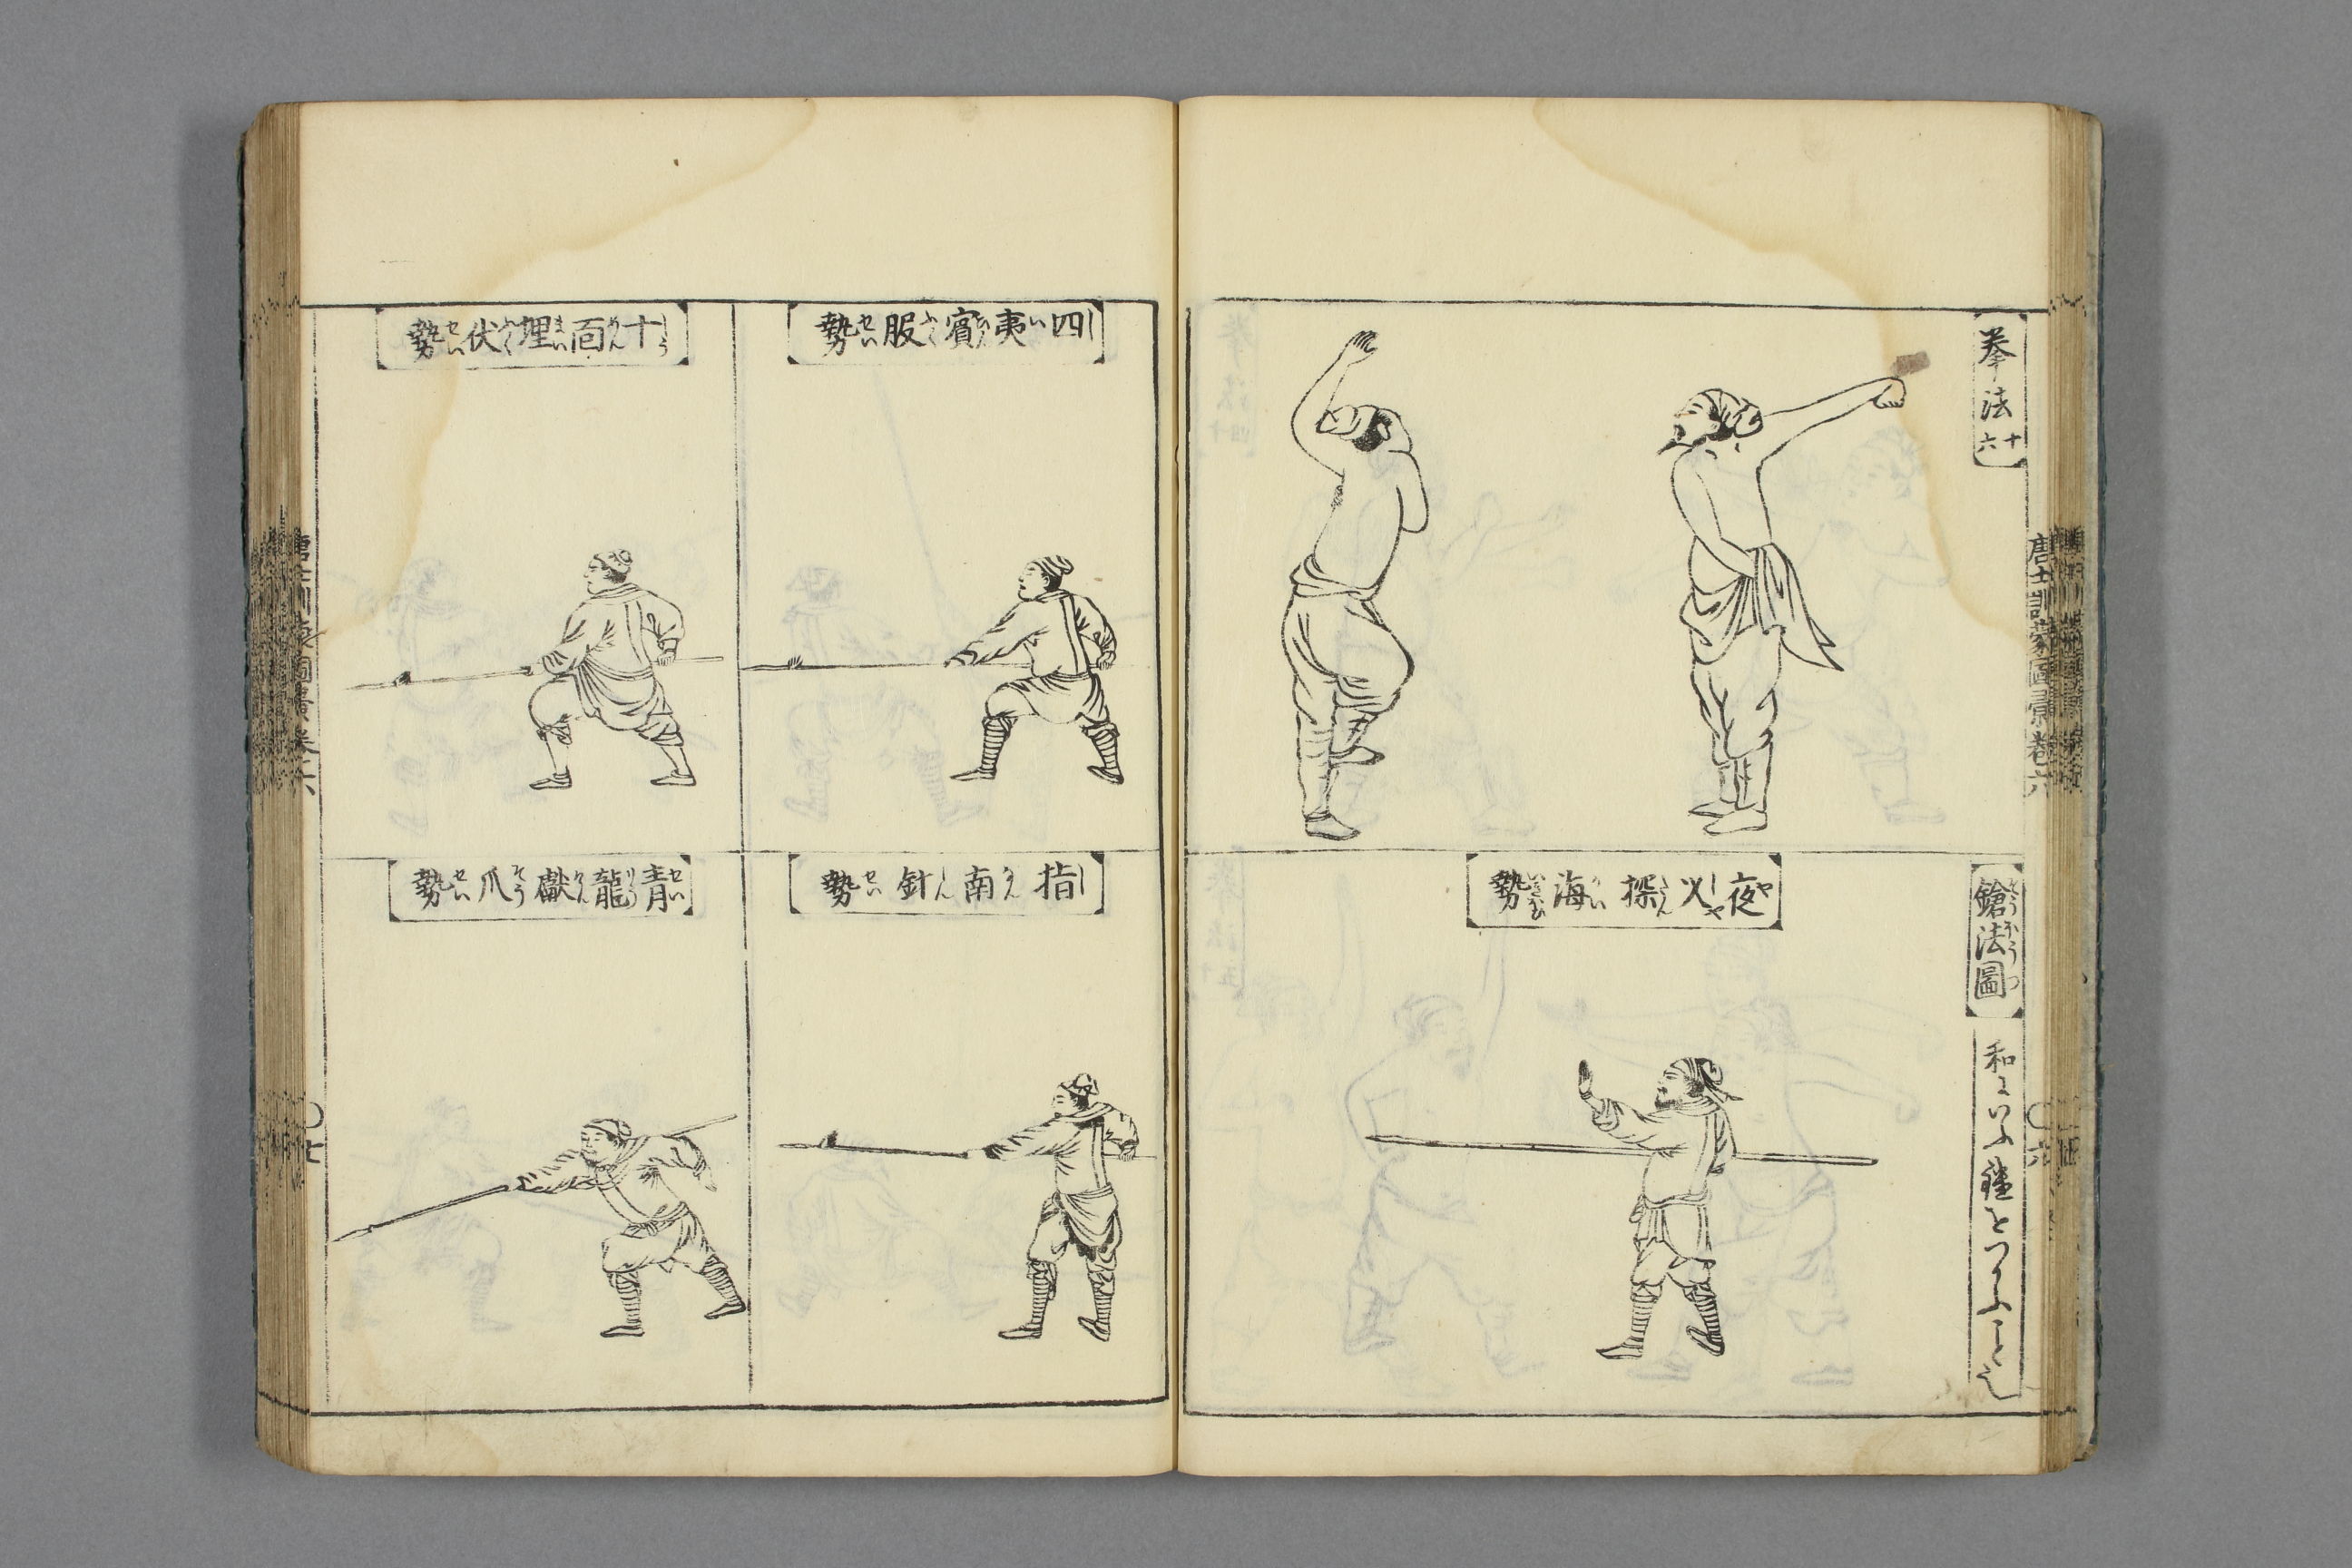 拳法十六
鎗法圖
和にいふ鑓をつかふこと也
夜叉探海勢
唐土訓蒙圖彙卷六
〇六
四夷賓服勢
十面埋伏勢
指南針勢
青龍獻爪勢
〇七